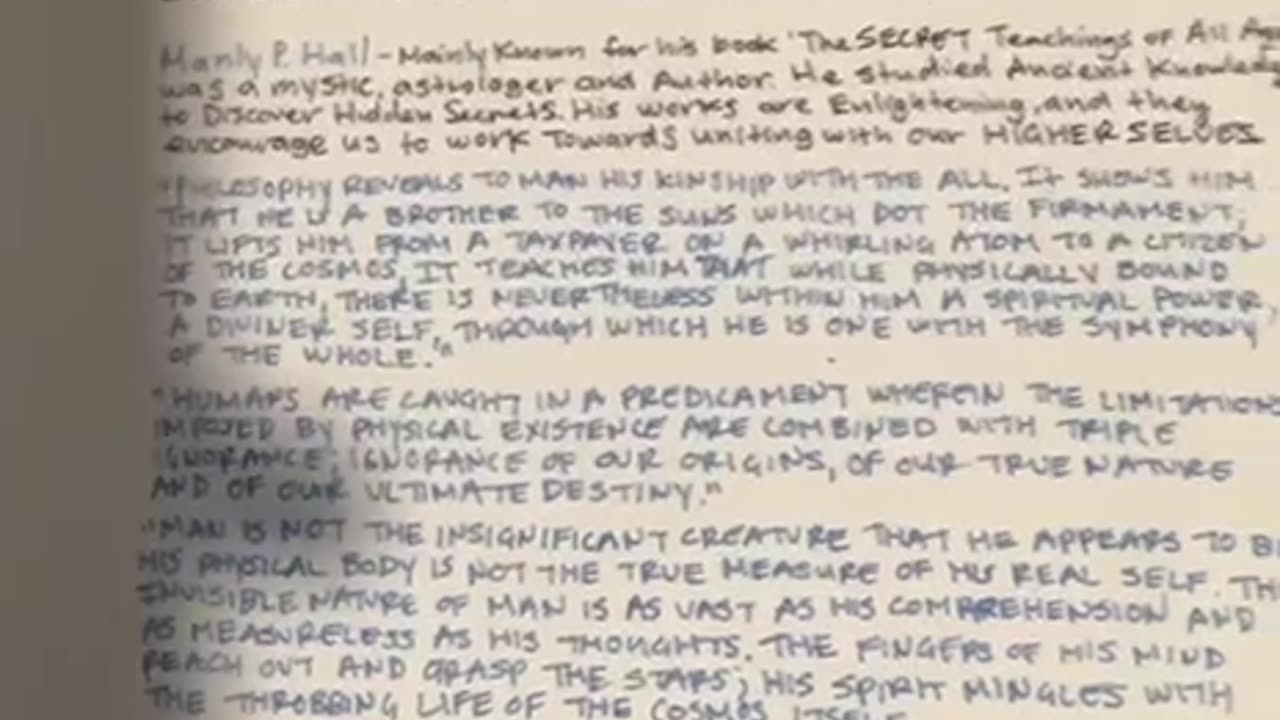 Manly P. Hall - Mainly Known for his book "The SECRET Teachings of All
was a mystic, astrologer and Author. He studied Ancient
to Discover Hidden Secrets. His works are Enlightening, and they
encourage us to work Towards uniting with our HIGHER SELVES
"PHILOSOPHY REVEALS TO MAN HIS KINSHIP WITH THE ALL. It SHOWS HIM
THAT HE IS A BROTHER TO THE SUNS WHICH DOT THE FIRMAMENT;
IT LIFTS HIM FROM A TAXPAYER ON A WHIRLING ATOM TO A CITIZEN
OF THE COSMOS, IT TEACHES HIM THAT WHILE PHYSICALLY BOUND
TO EARTH, THERE IS NEVERTHELESS WITHIN HIM A SPIRITUAL POWER,
A DIVINER SELF, THROUGH WHICH HE IS ONE WITH THE SYMPHONY
OF THE WHOLE."
"HUMANS ARE CAUGHT IN A PREDICAMENT WHEREIN THE LIMITATIONS
IMPOSED BY PHYSICAL EXISTENCE ARE COMBINED WITH TRIPLE
IGNORANCE; IGNORANCE OF OUR ORIGINS, OF OUR TRUE NATURE
AND OF OUR ULTIMATE DESTINY."
"MAN IS NOT THE INSIGNIFICANT CREATURE THAT HE APPEARS TO
HIS PHYSICAL BODY IS NOT THE TRUE MEASURE OF HIS REAL SELF.
INVISIBLE NATURE OF MAN IS AS VAST AS HIS COMPREHENSION AND
AS MEASURELESS AS HIS THOUGHTS. THE FINGERS OF HIS MIND
REACH OUT AND GRASP THE STARS; HIS SPIRIT MINGLES WITH
THE THROBBING LIFE OF THE COSMOS ITSELF